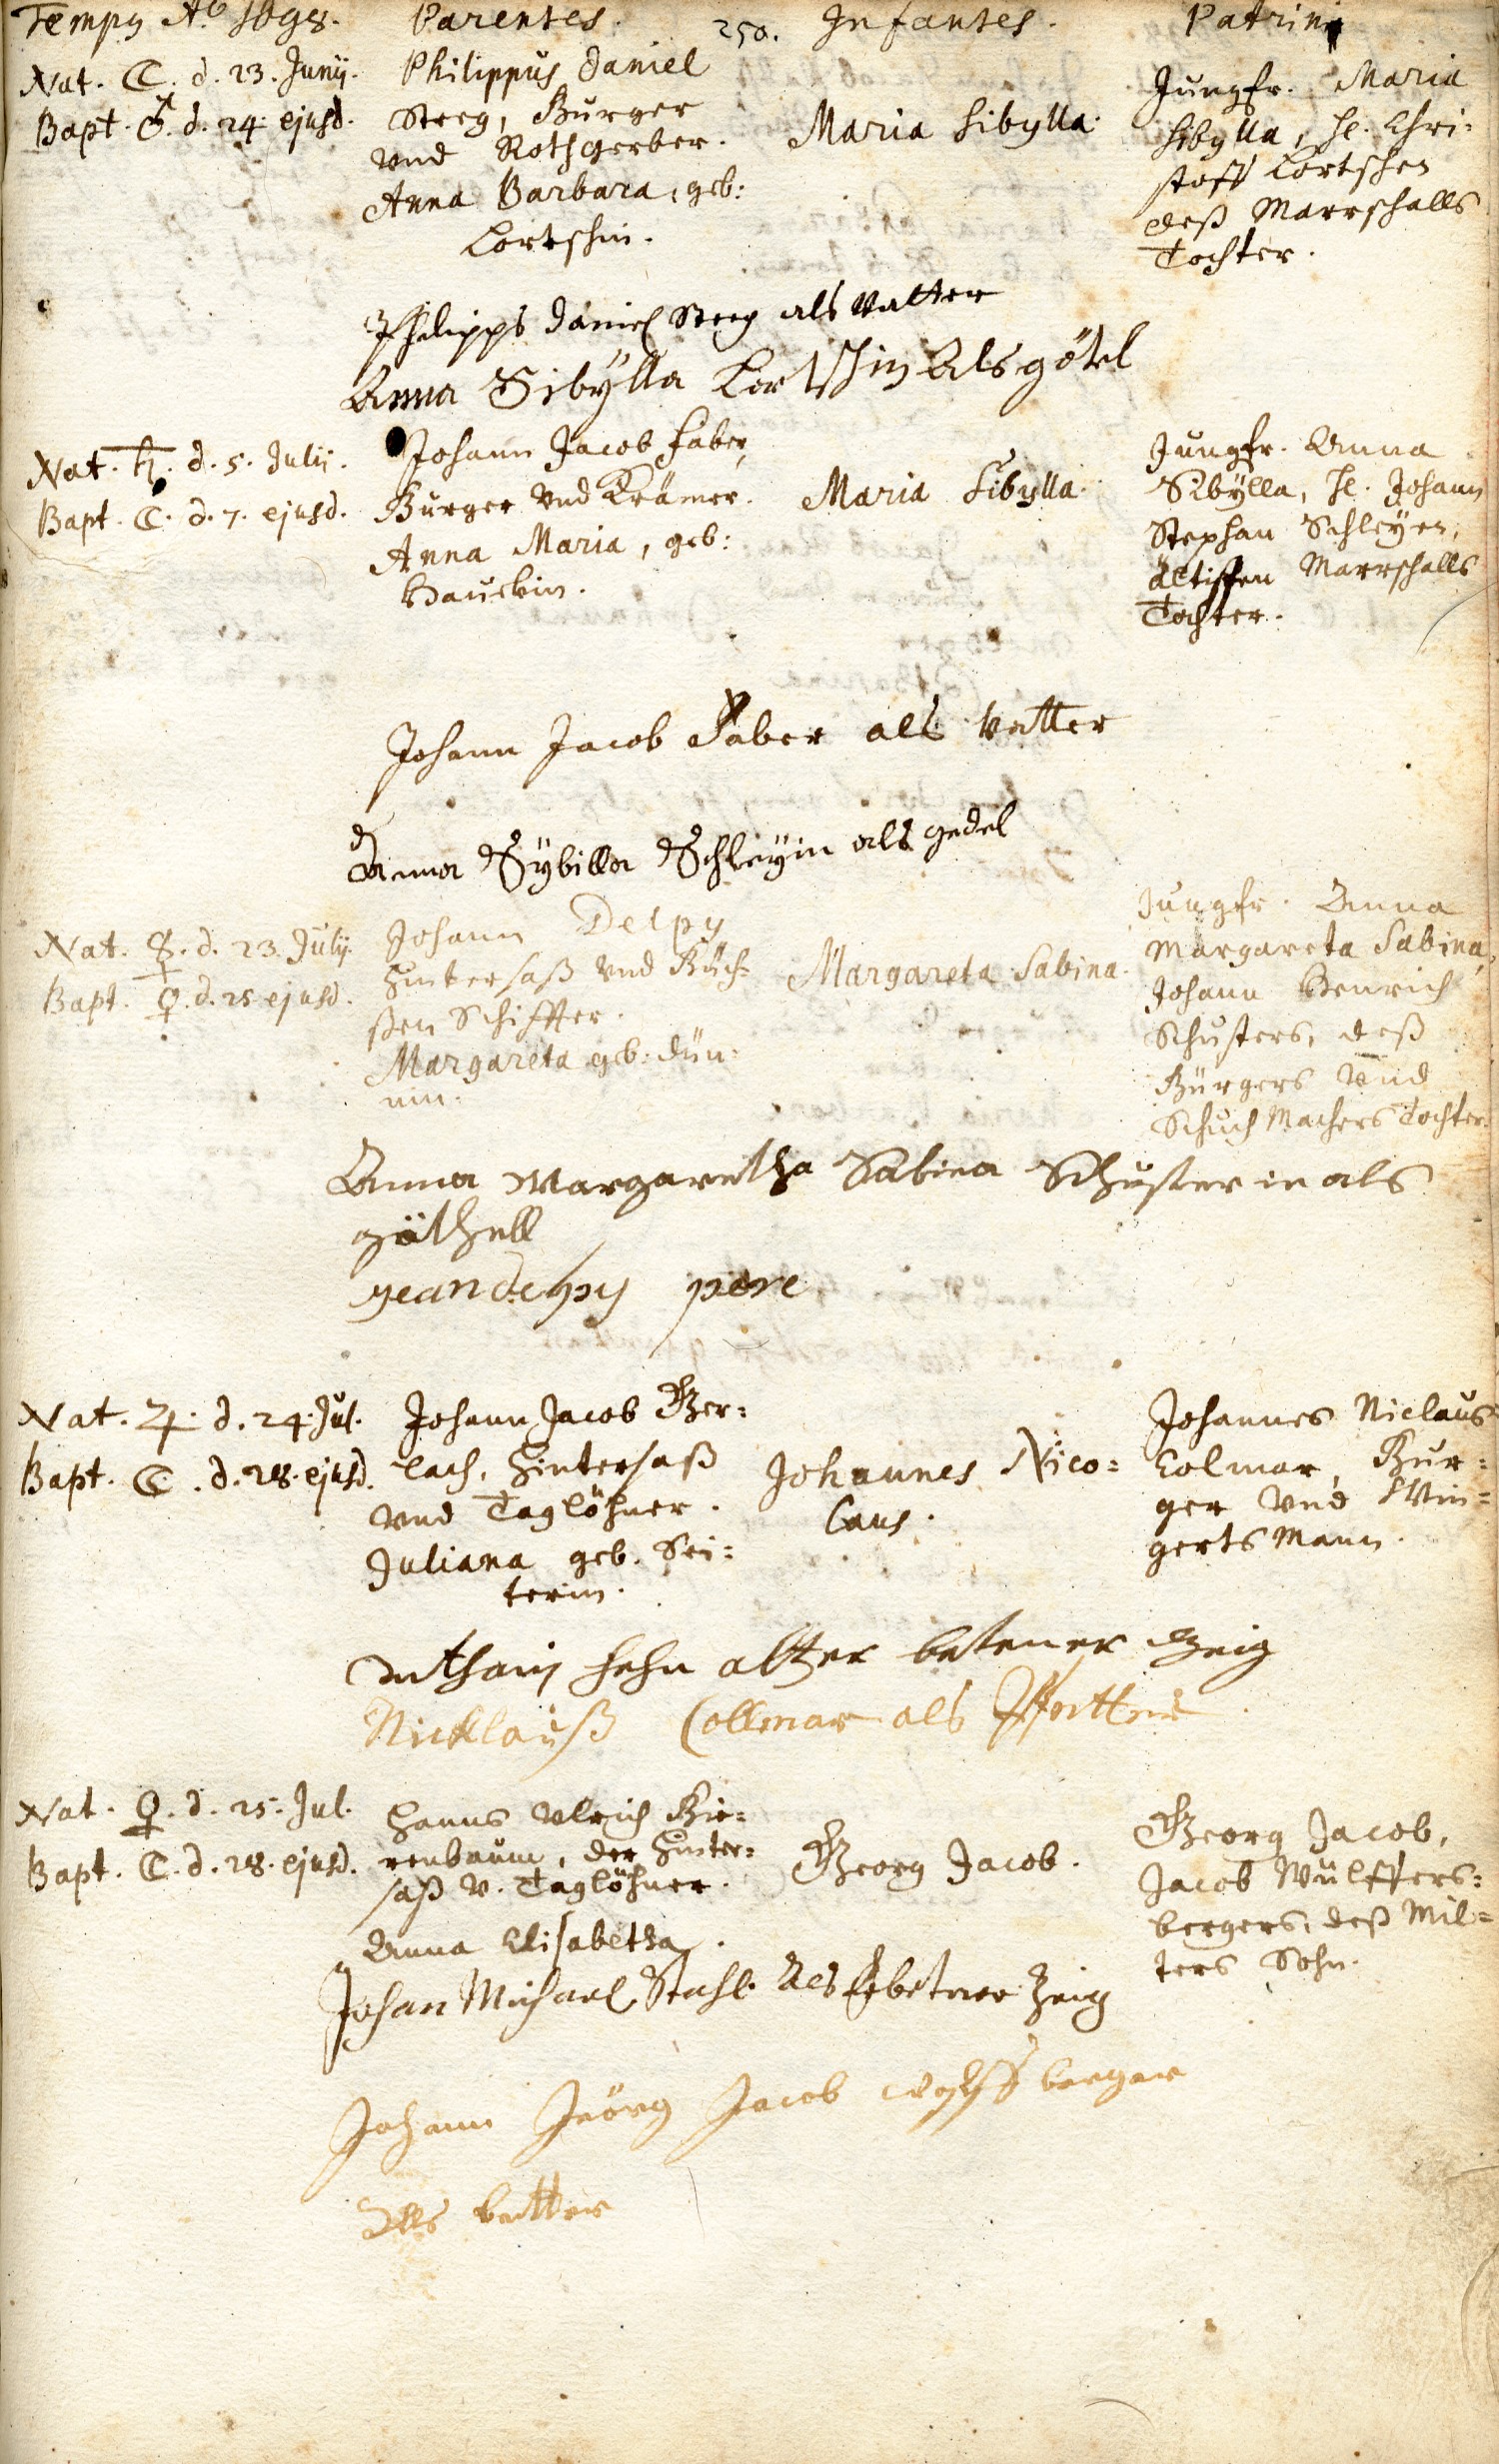 Tempg Aº 1698. Parentes. 250. Infantes. Patrini
Nat. ☾. d. 23. Junij.
Bapt. ♂. d. 24. ejusd.
Philippus Daniel
Steeg, Burger
vnd Rothgerber.
Anna Barbara, geb:
Lortschin.
Maria Sibylla.
Jungfr. Maria
Sibylla, H. Chri=
stoff Lortschen
deß Marrschalls
Tochter.
Philipps Daniel Steeg als Vatter
Anna Sibÿlla Lortschin Als götel
Nat. ♄. d. 5. Julii.
Bapt. ☾. d. 7. ejusd.
Johann Jacob Faber,
Burger vnd Krämer.
Anna Maria, geb:
Hauckin.
Maria Sibylla.
Jungfr. Anna
Sibÿlla, H. Johann
Stephan Schleÿen,
Marrschalls
Tochter.
Johann Jacob Faber als Vatter
Anna Sÿbilla Schleÿin als gedel
Nat. ☿. d. 23. Julij.
Bapt. ♀. d. 25 ejusd.
Johann Delpy
Hintersaß vnd Büch=
ßen Schiffter.
Margareta geb: Dün=
nin.
Margareta Sabina.
Jungfr. Anna
Margareta Sabina,
Johann Henrich
Schusters, deß
Bürgers vnd
Schuch Machers Tochter.
Anna Margaretha Sabina Schusterin als
göthell
jean delpy pere
Nat. ♃. d. 24. Jul.
Bapt. ☾. d. 28. ejusd.
Johann Jacob Ger=
lach, Hintersaß
vnd Taglöhner.
Juliana geb. Sei=
terin.
Johannes Nico=
laus.
Johannes Niclaus
Colmar, Bur=
ger vnd Win=
gerts Mann.
hehn alßer betener Zeig
Nicklauß Collmar als Pfetter
Nat. ♀. d. 25. Jul.
Bapt. ☾. d. 28. ejusd.
Hanns Vlrich Bir=
renbaum, der Hinter=
saß v. Taglöhner.
Anna Elisabetha.
Georg Jacob.
Georg Jacob,
Jacob Wülffers=
bergers, deß Mil=
lers Sohn.
Johan Michael Stahl Als gebetner Zeig
Johann Jeörg Jacob wolffsberger
Als